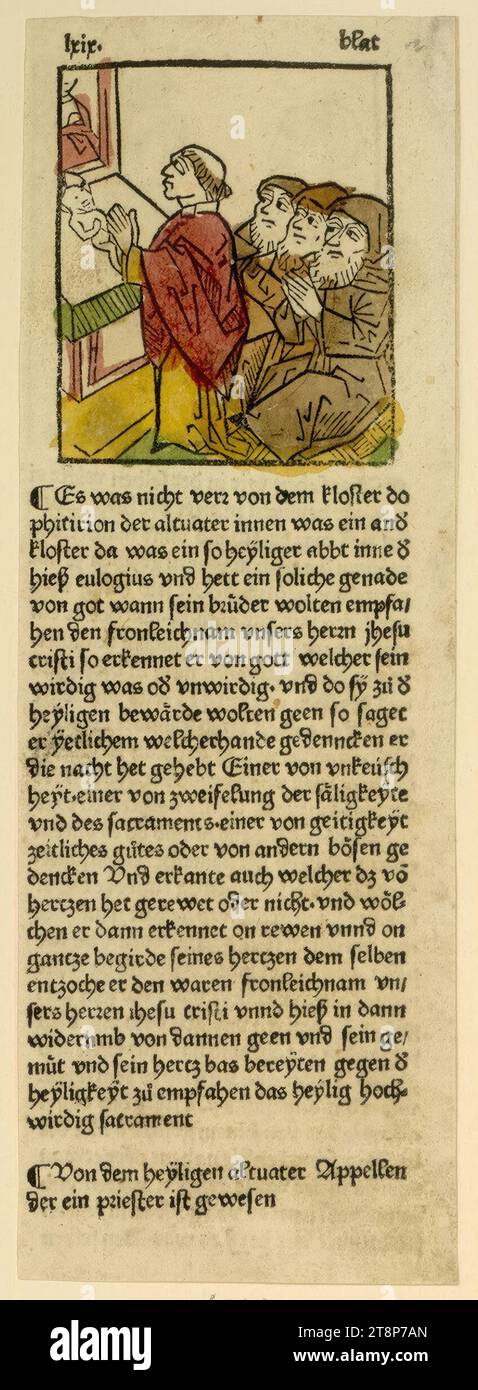 lxix. blat
¶ Es was nicht verr von dem kloster do
phiticion der altuater innen was ein and
kloster da was ein so heÿliger abbt inne d
hieß eulogius vnd hett ein soliche genade
von got wann sein brüder wolten empfa/
hen den fronleichnam vnsers herrn jhesu
cristi so erkennet er von gott welcher sein
wirdig was od vnwirdig. vnd do sÿ zů d
heÿligen bewårde wolten geen so saget
er ÿetlichem welcherhande gedenncken er
die nacht het gehebt Einer von vnkeüsch
heÿt.einer von zweifelung der såligkeÿte
vnd des sacraments.einer von geitigkeÿt
zeitliches gůtes oder von andern bösen ge
dencken Vnd erkante auch welcher dz vō
hertzen het gerewet oder nicht.vnd wöl⸗
chen er dann erkennet on rewen vnnd on
gantze begirde seines hertzen dem selben
entzoche er den waren fronleichnam vn/
sers herren ihesu cristi vnnd hieß in dann
widerumb von dannen geen vnd sein ge/
můt vnd sein hertz bas bereÿten gegen d
heÿligkeÿt zů empfahen das heÿlig hoch⸗
wirdig sacrament
¶ Von dem heÿligen altuater Appellen
der ein priester ist gewesen
alamy
Image ID: 2T8P7AN
www.alamy.com